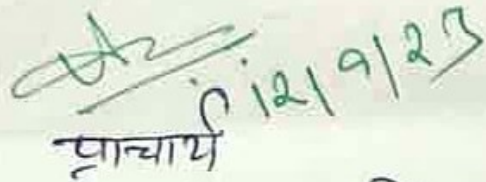 12/9/23
प्राचार्य